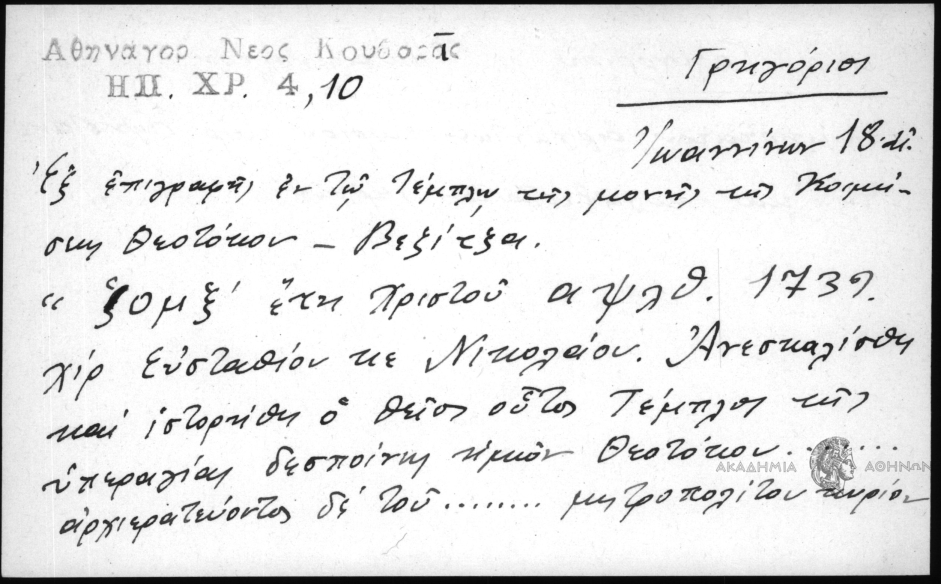 Ἀθηναγόρ. Νέος Κουβαρᾶς
ΗΠ. ΧΡ. 4,10
Γρηγόριος
Ἰωαννίνων 18 αἰ.
Ἐξ ἐπιγραφῆς ἐν τῷ τέμπλῳ τῆς μονῆς τῆς Κοιμή-
σεως Θεοτόκου – Βεξίτζα.
ἔτη Χριστοῦ αψλθ. 1739.
χὶρ Εὐσταθίου κε Νικολάου. Ἀνεσκαλίσθη
καὶ ἱστορήθη ὁ θεῖος οὗτος Τέμπλος τῆς
ὑπεραγίας δεσποίνης ἡμῶν Θεοτόκου........
ΑΚΑΔΗΜΙΑ ΑΘΗΝΩΝ
ἀρχιερατεύοντος δὲ τοῦ........ μητροπολίτου κυρίου